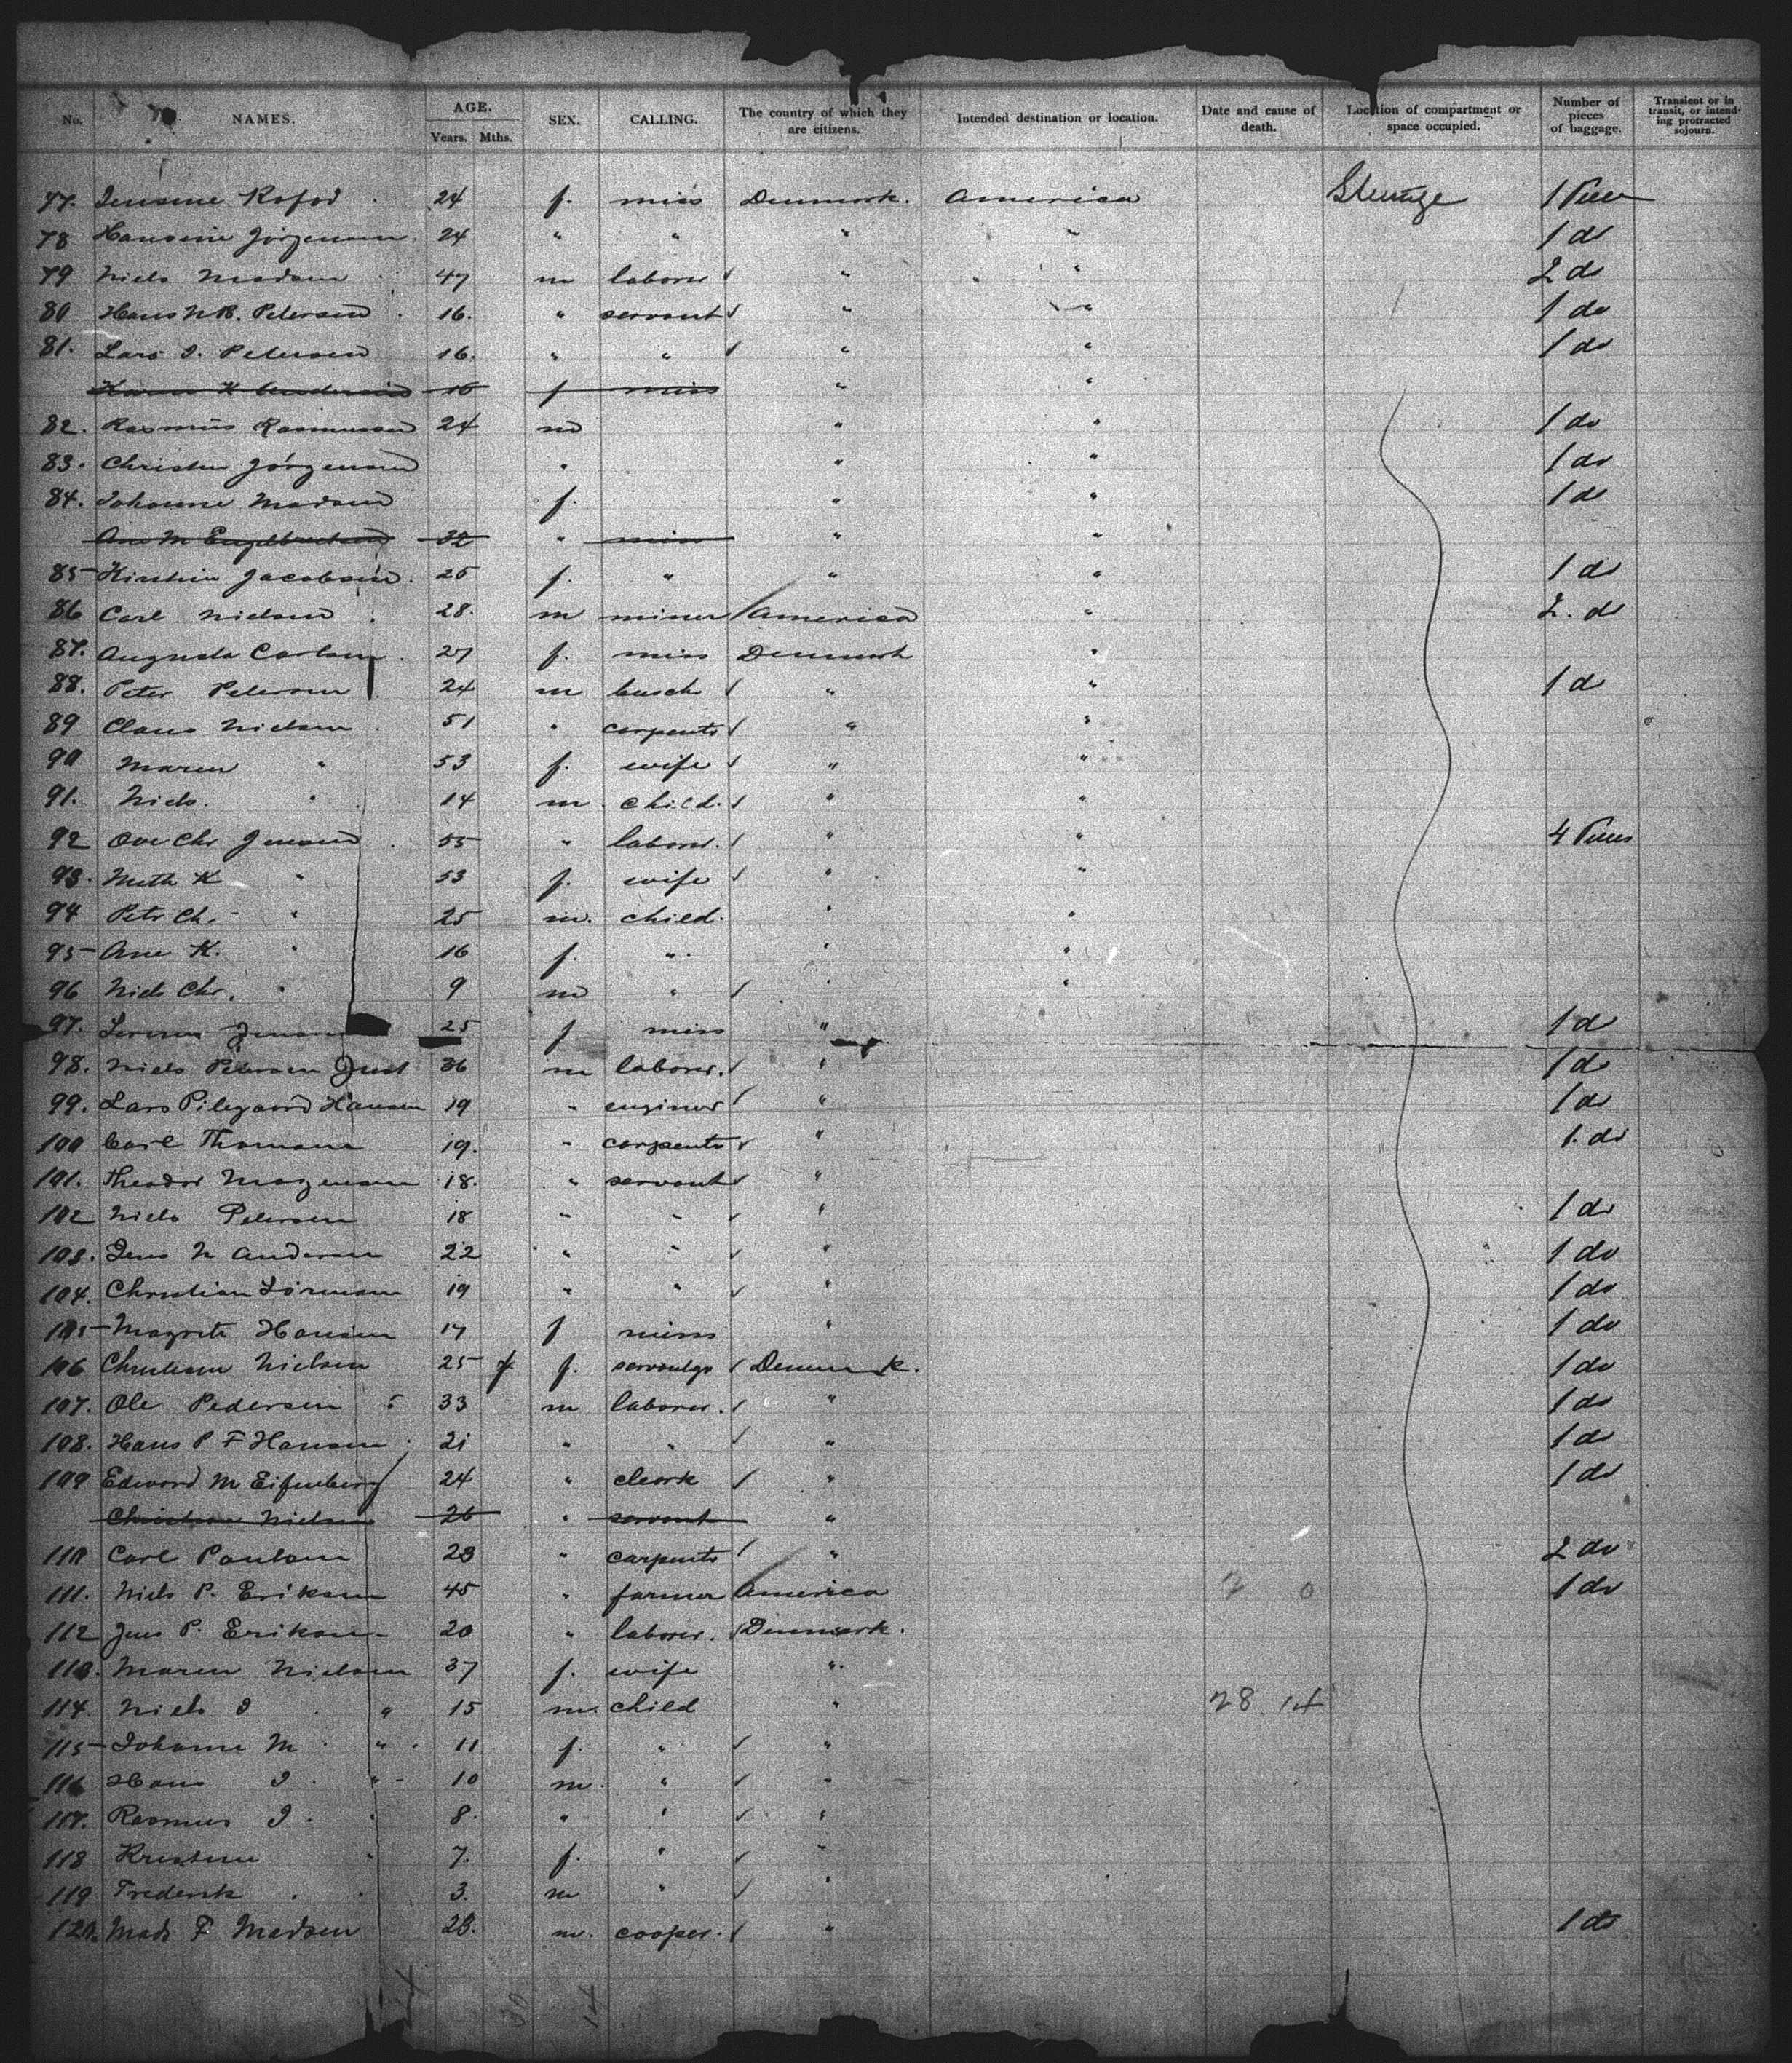 No. NAMES. AGE. Years. Mths. SEX. CALLING. The country of which they are citizens. Intended destination or location. Date and cause of death. Location of compartment or space occupied. Number of pieces of baggage. Transient or in transit, or intending protracted sojourn.
77. Jensine Kofod 24 f. miss Denmark. America 1
78 Hansine Jörgensen 24 " " " " 1 do
79 Niels Madsen 47 m laborer " " 2 do
80 Hans N.B. Petersen 16. " servant " " 1 do
81. Lars J. Petersen 16. " " " " 1 do
16 f miss " "
82. Rasmus Rasmussen 24 m " " 1 do
83. Christen Jörgensen " " " 1 do
84. Johanne Madsen f. " " 1 do
Ane M Engelbrechtsen 32 " miss " "
85 Kirstin Jacobsen. 25 f. " " " 1 do
86 Carl Nielsen 28. m miner America " 2. do
87. Augusta Carlsen 27 f. miss Denmark "
88. Peter Petersen 24 m " " 1 do
89 Claus Nielsen 51 " carpenter " "
90 Maren " 53 f. wife " "
91. Niels. " 14 m. child. " "
92 Ove Chr Jensen 55 " laborer. " " 4
93. Meth K " 53 f. wife " "
94 Petr Ch. " 25 m. child. " "
95 Ane K. " 16 f. " " "
96 Niels Chr. " 9 m " " "
97. Jensen 25 f miss " 1 do
98. Niels Petersen Juul 36 m laborer. " 1 do
99. Lars Pilegaard Hansen 19 " engineer " 1 do
100 Carl Thomsen 19. " carpenter " 1. do
101. Theodor Mogensen 18. " servant "
102 Niels Petersen 18 " " " 1 do
103. Jens N Andersen 22 " " " 1 do
104. Christian Sörensen 19 " " " 1 do
105 Magrete Hansen 17 f miss " 1 do
106 Nielsen 25 f. Denmark. 1 do
107. Ole Pedersen 33 m laborer. " 1 do
108. Hans P F Hansen 21 " " " 1 do
109 Edward M 24 " clerk " 1 do
Christian Nielsen 26 " servant "
110 Carl Paulsen 23 " carpenter " 2 do
111. Niels P. Eriksen 45 " farmer America 1 do
112 Jens P. Eriksen 20 " laborer. Denmark.
113. Maren Nielsen 37 f. wife "
114. Niels J " 15 m. child " 28 14
115 Johanne M " 11 f. " "
116 Hans J. " 10 m. " "
117. Rasmus J. " 8. " " "
118 Kristine " 7. f. " "
119 Frederik " 3. m " "
120. Mads F Madsen 28. m. cooper. " 1 do